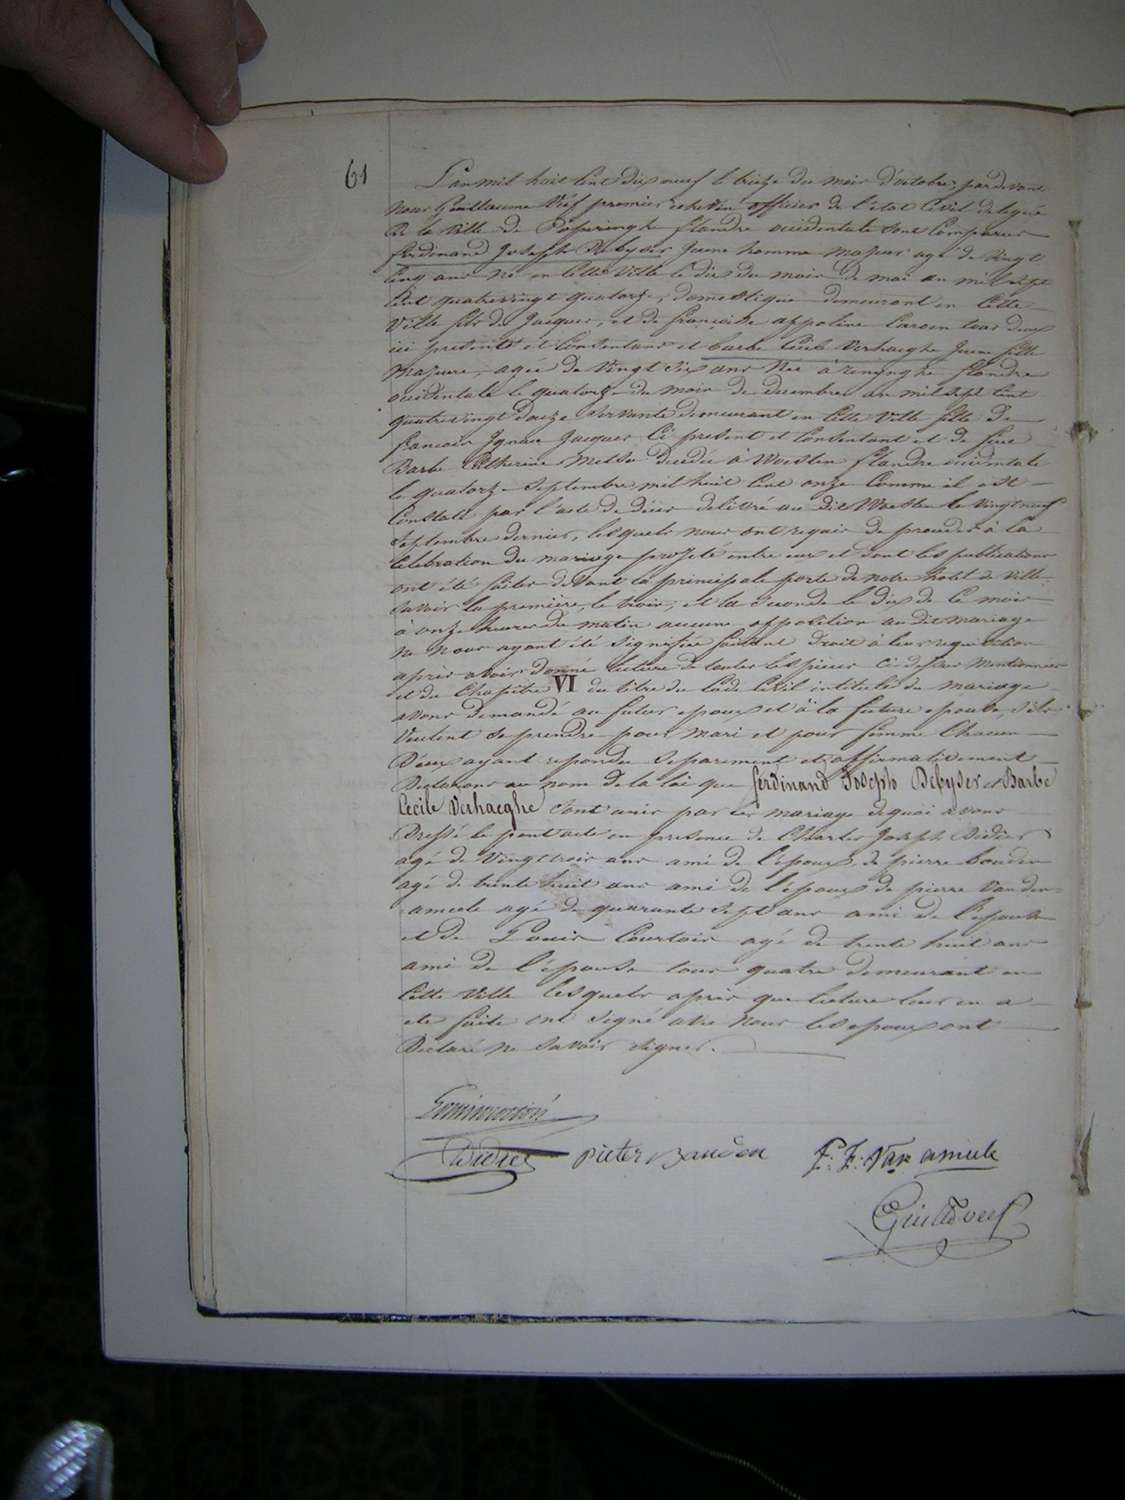 61
L'an mil huit cent dix neuf le treize du mois d'octobre, pardevant
nous Guillaume Vief premier echevin officier de l'état civil delegué
de la ville de Poperinghe flandre occidentale sont comparus
ferdinand Joseph Debyser jeune homme majeur agé de vingt
cinq ans né en cette ville le dix du mois de mai an mil sept
cent quatrevingt quatorze, domestique demeurant en cette
ville fils de Jacques, et de françoise appoline tous deux
ici présents et consentans et barbe Cécile Verhaeghe Jeune fille
majeure, agée de vingt six ans née à reninghe flandre
occidentale le quatorze du mois de decembre an mil sept cent
quatrevingt douze servante demeurant en cette ville fille de
francois Ignace Jacques ci present et consentant et de feue
Barbe Catherine decedée à Woesten flandre occidentale
le quatorze septembre mil huit cent onze comme il est
constaté par l'acte de décès delivré au dit Woesten le vingt neuf
septembre dernier, lesquels nous ont requis de proceder à la
celebration du mariage projeté entre eux et dont les publications
ont été faites devant la principale porte de notre hotel de ville
savoir la première, le trois, et la seconde le dix de ce mois
à onze heures du matin aucune opposition au dit mariage
ne nous ayant été signifiée faisant droit à leur requisition
après avoir donné lecture de toutes les pieces ci dessus mentionnées
et du chapitre VI du titre du Code Civil intitulé du mariage
avons demandé au futur epoux et à la future epouse, s'ils
veulent se prendre pour mari et pour femme chacun
d'eux ayant repondu separement et affirmativement
Declarons au nom de la loi que ferdinand Joseph Debyser et Barbe
Cecile Verhaeghe sont unis par le mariage de quoi avons
Dressé le pent acte en presence de Charles Joseph Didier
agé de vingt trois ans ami de l'époux, de pierre bauden
agé de trente huit ans ami de l'époux de pierre Vanden
ameele agé de quarante sept ans ami de l'epouse
et de Louis Courtois agé de trente huit ans
ami de l'épouse tous quatre demeurant en
cette ville lesquels après que lecture leur en a
ete faite ont signé avec nous les epoux ont
Declaré ne savoir signer.
Didier pieter Bauden